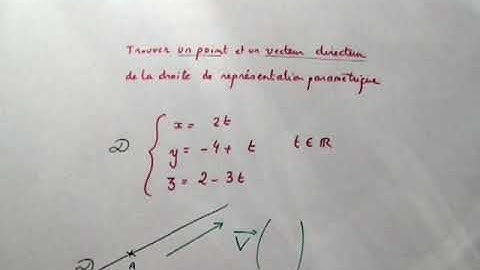 Trouver un point et un vecteur directeur
de la droite de représentation paramétrique
D { x = 2t
y = -4 + t t ∈ ℝ
z = 2 - 3t
V⃗ ( )
D A